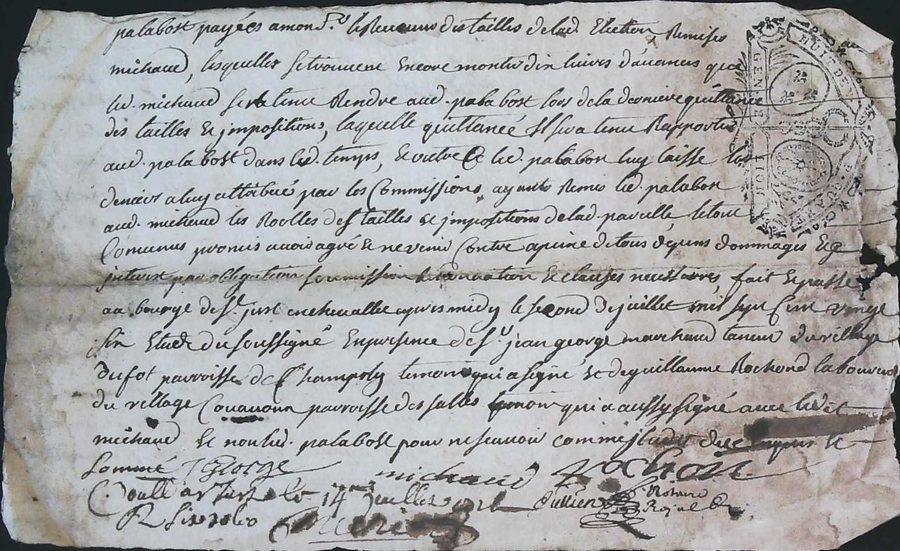 palabost payées a mond. Sr les Receveurs des tailles de lad. Election Remises
michaud, lesquelles se trouvent Encore monter dix livres d'avances que
led. michaud sera tenu Rendre aud. palabost lors de la derniere quittance
des tailles & jmpositions, laquelle quittance Il sera tenu Rapporter
aud. palabost dans led. temps, & outre Ce led. palabost luy laisse les
deniers a luy attribué par les Commissions, ayant Remis led. palabost
aud. michaud les Roolles des tailles & jmpositions de lad. le tout
Convenus promis avoir agré & ne venir Contre a peine de tous depens dommages &
jnterest par obligation soumission Renonciation & clauses necessaires, fait & passé
au bourg de St. just en chevallet apres midy le second de juillet mil sept Cent vingt
six Etude du soussigné En presence de Sr. jean george marchand taneur du village
Dufot parroisse de Champoly temoin qui a signé & de guillaume Rochond laboureur
du village parroisse des salles temoin qui a aussy signé avec led.
michaud & non led. palabost pour ne scavoir comme il a dit de Ce enquis &
sommé J George
michaud Rochon
Conllé a St just le 14e juillet
R six sols
jullien Notaire
Royal
GENER LION
HUIT DEN